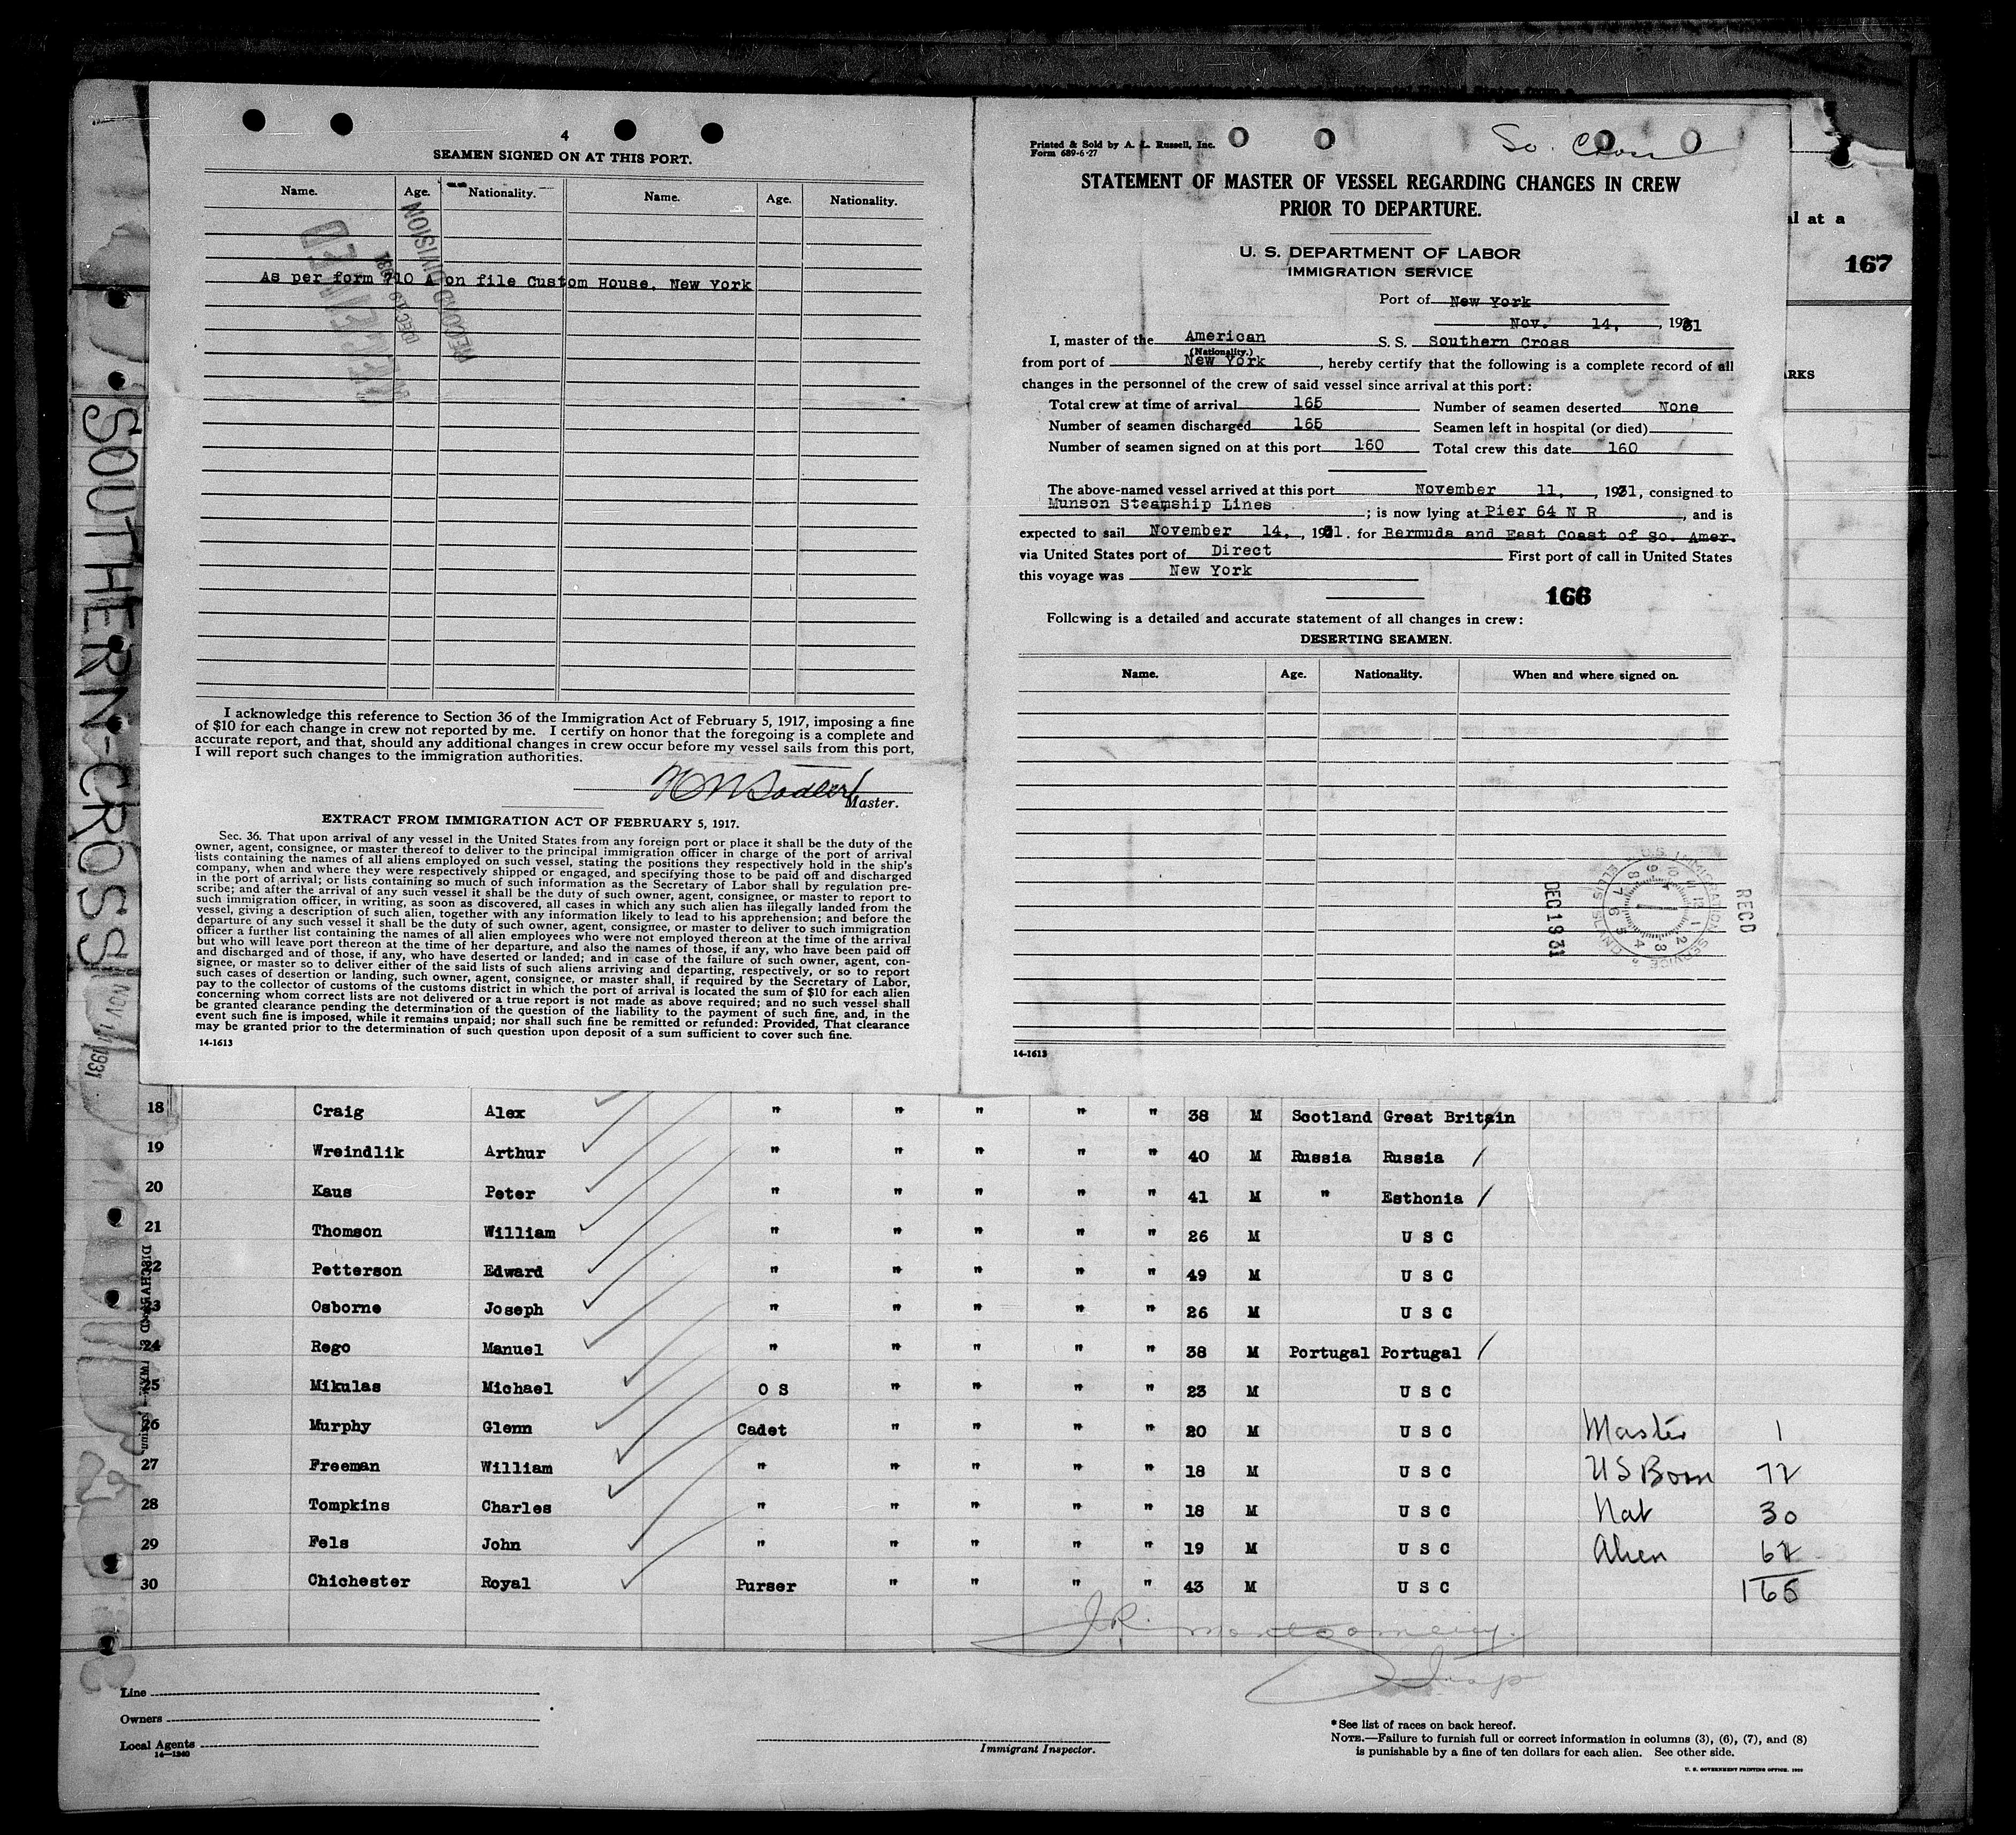 4
SEAMEN SIGNED ON AT THIS PORT.
Name. Age. Nationality. Name. Age. Nationality.
As per form 710 A on file Custom House, New York
RECORD DIVISION
DEC 1931
I acknowledge this reference to Section 36 of the Immigration Act of February 5, 1917, imposing a fine
of $10 for each change in crew not reported by me. I certify on honor that the foregoing is a complete and
accurate report, and that, should any additional changes in crew occur before my vessel sails from this port,
I will report such changes to the immigration authorities.
Master.
EXTRACT FROM IMMIGRATION ACT OF FEBRUARY 5, 1917.
Sec. 36. That upon arrival of any vessel in the United States from any foreign port or place it shall be the duty of the
owner, agent, consignee, or master thereof to deliver to the principal immigration officer in charge of the port of arrival
lists containing the names of all aliens employed on such vessel, stating the positions they respectively hold in the ship's
company, when and where they were respectively shipped or engaged, and specifying those to be paid off and discharged
in the port of arrival; or lists containing so much of such information as the Secretary of Labor shall by regulation pre-
scribe; and after the arrival of any such vessel it shall be the duty of such owner, agent, consignee, or master to report to
such immigration officer, in writing, as soon as discovered, all cases in which any such alien has illegally landed from the
vessel, giving a description of such alien, together with any information likely to lead to his apprehension; and before the
departure of any such vessel it shall be the duty of such owner, agent, consignee, or master to deliver to such immigration
officer a further list containing the names of all alien employees who were not employed thereon at the time of the arrival
but who will leave port thereon at the time of her departure, and also the names of those, if any, who have been paid off
and discharged and of those, if any, who have deserted or landed; and in case of the failure of such owner, agent, con-
signee, or master so to deliver either of the said lists of such aliens arriving and departing, respectively, or so to report
such cases of desertion or landing, such owner, agent, consignee, or master shall, if required by the Secretary of Labor,
pay to the collector of customs of the customs district in which the port of arrival is located the sum of $10 for each alien
concerning whom correct lists are not delivered or a true report is not made as above required; and no such vessel shall
be granted clearance pending the determination of the question of the liability to the payment of such fine, and, in the
event such fine is imposed, while it remains unpaid; nor shall such fine be remitted or refunded: Provided, That clearance
may be granted prior to the determination of such question upon deposit of a sum sufficient to cover such fine.
14-1613
Printed & Sold by A. L. Russell, Inc.
Form 689-6-27
So. Cross
STATEMENT OF MASTER OF VESSEL REGARDING CHANGES IN CREW
PRIOR TO DEPARTURE.
U. S. DEPARTMENT OF LABOR
IMMIGRATION SERVICE
Port of New York
Nov. 14, , 1931
I, master of the American S. S. Southern Cross
(Nationality.)
from port of New York , hereby certify that the following is a complete record of all
changes in the personnel of the crew of said vessel since arrival at this port:
Total crew at time of arrival 165 Number of seamen deserted None
Number of seamen discharged 165 Seamen left in hospital (or died)
Number of seamen signed on at this port 160 Total crew this date 160
The above-named vessel arrived at this port November 11, , 1931, consigned to
Munson Steamship Lines ; is now lying at Pier 64 N R , and is
expected to sail November 14, , 1931. for Bermuda and East Coast of So. Amer.
via United States port of Direct First port of call in United States
this voyage was New York
166
Following is a detailed and accurate statement of all changes in crew:
DESERTING SEAMEN.
Name. Age. Nationality. When and where signed on.
U.S. IMMIGRATION SERVICE
ELLIS ISLAND
RECD
DEC 1 9 31
14-1613
al at a
167
ARKS
SOUTHERN-CROSS
NOV 11 1931
18 Craig Alex " " " " " 38 M Scotland Great Britain
19 Wreindlik Arthur " " " " " 40 M Russia Russia
20 Kaus Peter " " " " " 41 M " Esthonia
21 Thomson William " " " " " 26 M U S C
22 Petterson Edward " " " " " 49 M U S C
23 Osborne Joseph " " " " " 26 M U S C
24 Rego Manuel " " " " " 38 M Portugal Portugal
25 Mikulas Michael O S " " " " 23 M U S C
26 Murphy Glenn Cadet " " " " 20 M U S C Master 1
27 Freeman William " " " " " 18 M U S C US Born 72
28 Tompkins Charles " " " " " 18 M U S C Nat 30
29 Fels John " " " " " 19 M U S C Alien 62
30 Chichester Royal Purser " " " " 43 M U S C 165
J.R. Montgomery.
Insp
Line
Owners
Local Agents
14-1240
Immigrant Inspector.
*See list of races on back hereof.
NOTE.—Failure to furnish full or correct information in columns (3), (6), (7), and (8)
is punishable by a fine of ten dollars for each alien. See other side.
U. S. GOVERNMENT PRINTING OFFICE. 1929